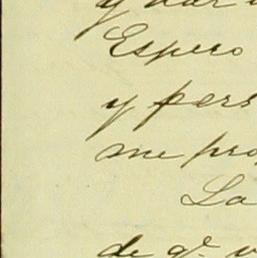 y
Espero
y pers
me pro
La
de qe. v